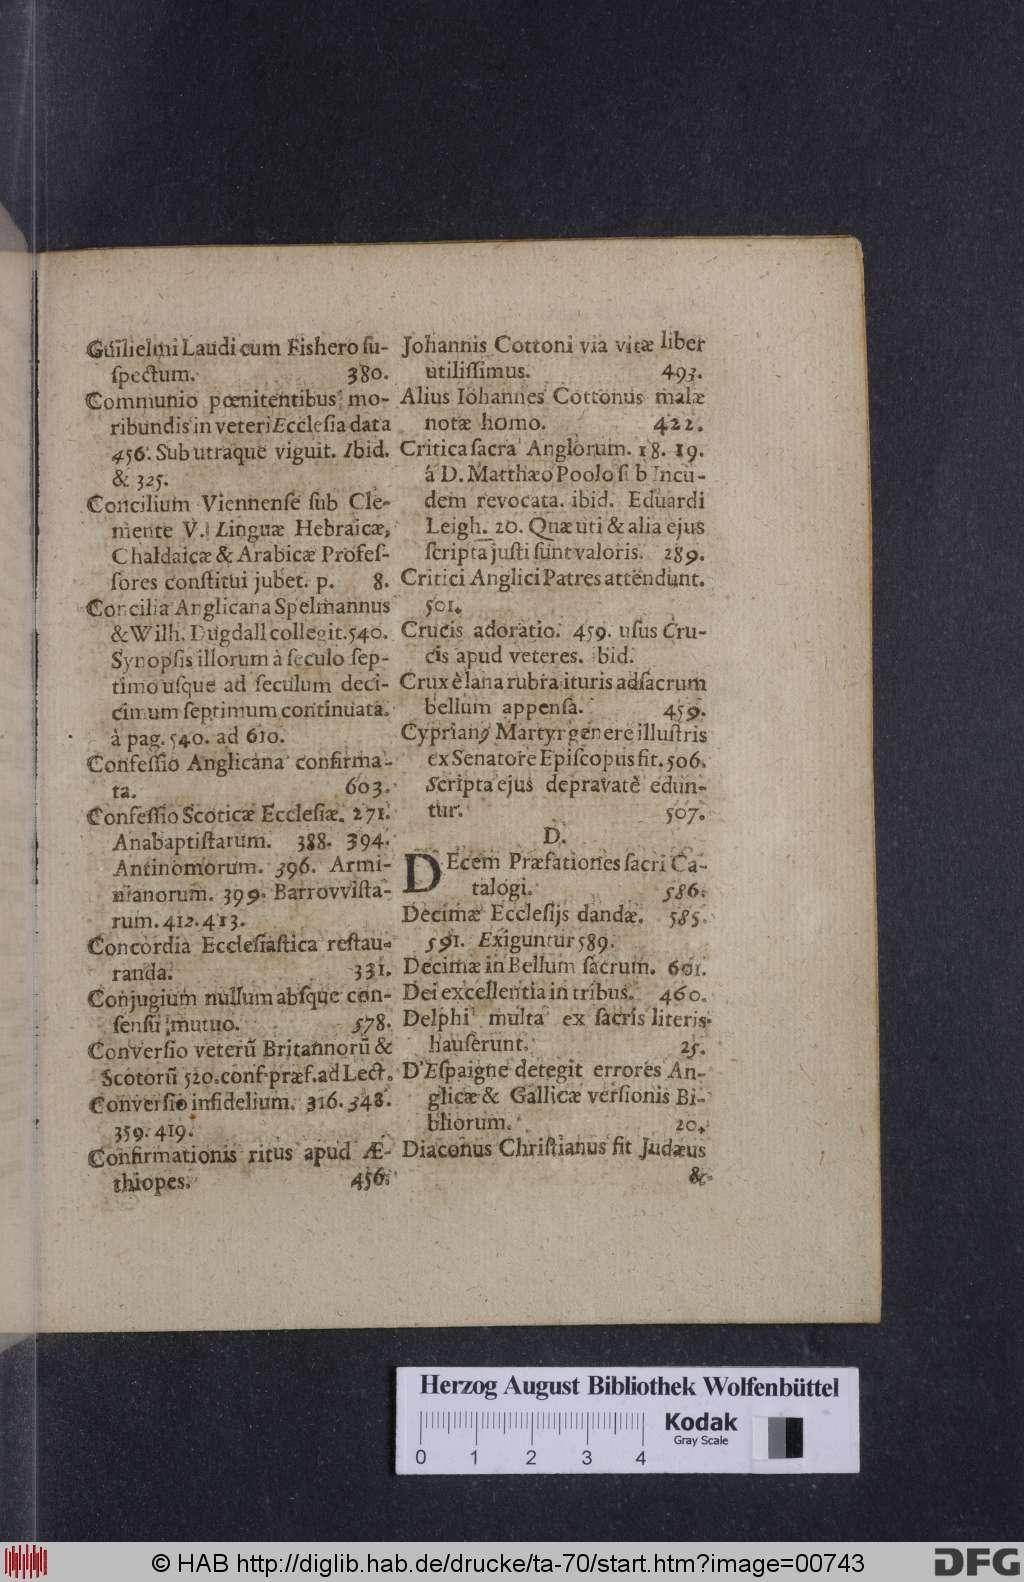 Guilielmi Laudi cum Fishero ſu-
ſpectum. 380.
Communio pœnitentibus, mo-
ribundis in veteri Eccleſia data
456. Sub utraque viguit. Ibid.
& 325.
Concilium Viennenſe ſub Cle-
mente V. Linguæ Hebraicæ,
Chaldaicæ & Arabicæ Profeſ-
ſores conſtitui jubet. p. 8.
Concilia Anglicana Spelmannus
& Wilh. Dugdall collegit. 540.
Synopſis illorum à ſeculo ſep-
timo uſque ad ſeculum deci-
cimum ſeptimum continuata.
à pag. 540. ad 610.
Confeſſio Anglicana confirma-
ta. 603.
Confeſſio Scoticæ Eccleſiæ. 271.
Anabaptiſtarum. 388. 394.
Antinomorum. 396. Armi-
nianorum. 399. Barrovviſta-
rum. 412. 413.
Concordia Eccleſiaſtica reſtau-
randa. 331.
Conjugium nullum abſque con-
ſenſu mutuo. 578.
Converſio veterū Britannorū &
Scotorū 520. conf. præf. ad Lect.
Converſio infidelium. 316. 348.
359. 419.
Confirmationis ritus apud Æ-
thiopes. 456.
Johannis Cottoni via vitæ liber
utiliſſimus. 493.
Alius Iohannes Cottonus malæ
notæ homo. 422.
Critica ſacra Anglorum. 18. 19.
á D. Matthæo Poolo ſ b Incu-
dem revocata. ibid. Eduardi
Leigh. 20. Quæ uti & alia ejus
ſcripta juſti ſunt valoris. 289.
Critici Anglici Patres attendunt.
501.
Crucis adoratio. 459. uſus Cru-
cis apud veteres. ibid.
Crux è lana rubra ituris ad ſacrum
bellum appenſa. 459.
Cyprianꝰ Martyr genere illuſtris
ex Senatore Epiſcopus fit. 506.
Scripta ejus depravatè edun-
tur. 507.
D.
DEcem Præfationes ſacri Ca-
talogi. 586.
Decimæ Eccleſijs dandæ. 585.
591. Exiguntur 589.
Decimæ in Bellum ſacrum. 601.
Dei excellentia in tribus. 460.
Delphi multa ex ſacris literis
hauſerunt. 25.
D'Eſpaigne detegit errores An-
glicæ & Gallicæ verſionis Bi-
bliorum. 20.
Diaconus Chriſtianus fit Judæus
&
Herzog August Bibliothek Wolfenbüttel
Kodak
Gray Scale
0 1 2 3 4
© HAB http://diglib.hab.de/drucke/ta-70/start.htm?image=00743
DFG